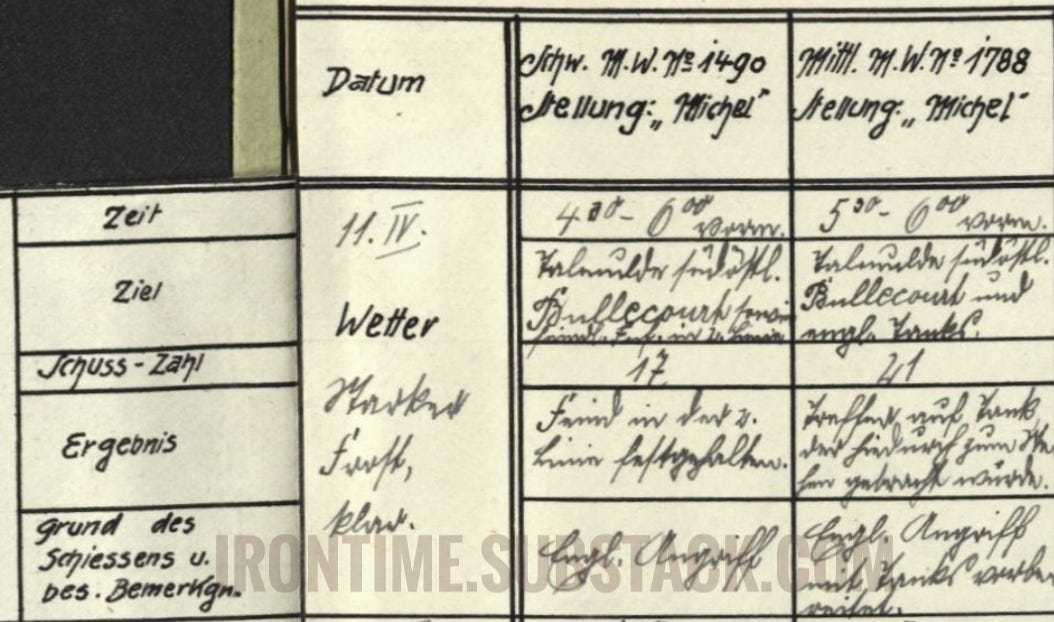 Datum
Schw. M.W. Nº 1490
Stellung: „Michel"
Mittl. M.W. Nº 1788
Stellung: „Michel"
Zeit
11. IV.
4³⁰ - 6⁰⁰ vorm.
5³⁰ - 6⁰⁰ vorm.
Ziel
Wetter
Talmulde südöstl.
Bullecourt sowie
feindl. Inf. in 2. Linie
Talmulde südöstl.
Bullecourt und
engl. Tanks.
Schuss - Zahl
17
21
Ergebnis
Starker
Frost,
klar.
Feind in der 2.
Linie festgehalten.
Treffer auf Tank
der hiedurch zum Ste-
hen gebracht wurde.
Grund des
Schiessens u.
bes. Bemerkgn.
Engl. Angriff
Engl. Angriff
mit Tanks vorbe-
reitet.
IRONTIME.SUBSTACK.COM